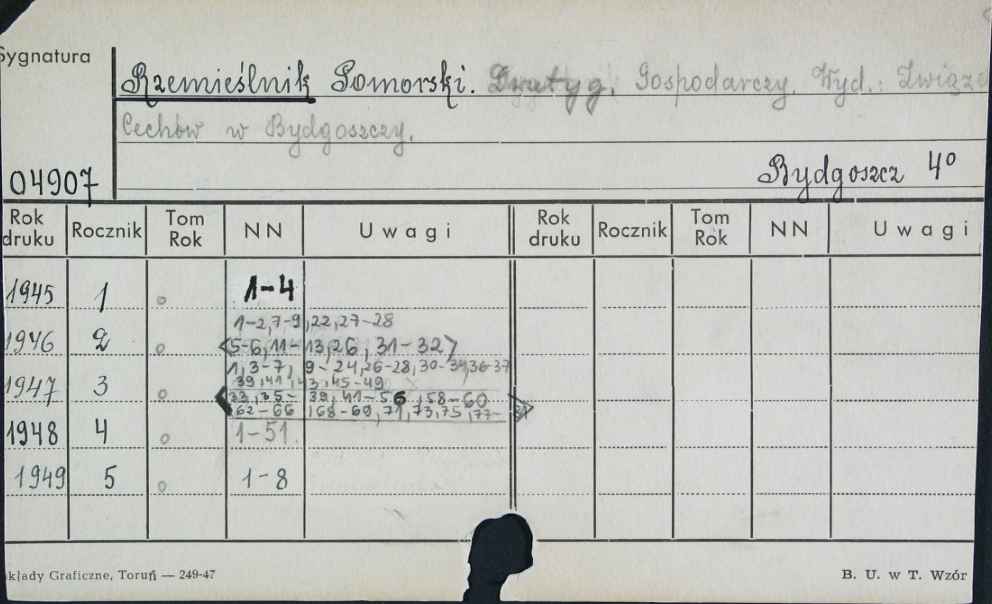 Sygnatura
Rzemieślnik Pomorski. Gospodarczy. Wyd.: Związe
Cechów w Bydgoszczy.
04907
Bydgoszcz 4º
Rok druku Rocznik Tom Rok NN Uwagi Rok druku Rocznik Tom Rok NN Uwagi
1945 1 o 1-4
1-2,7-9,22,27-28
1946 2 o <5-6,11-13,26,31-32>
1,3-7, 9-24,26-28,30-34,36-37
39,41,43,45-49
1947 3 o <33,35-39,41-56,58-60
62-66,68-69,71,73,75,77-
1948 4 o 1-51.
1949 5 o 1-8
kłady Graficzne, Toruń — 249-47
B. U. w T. Wzór